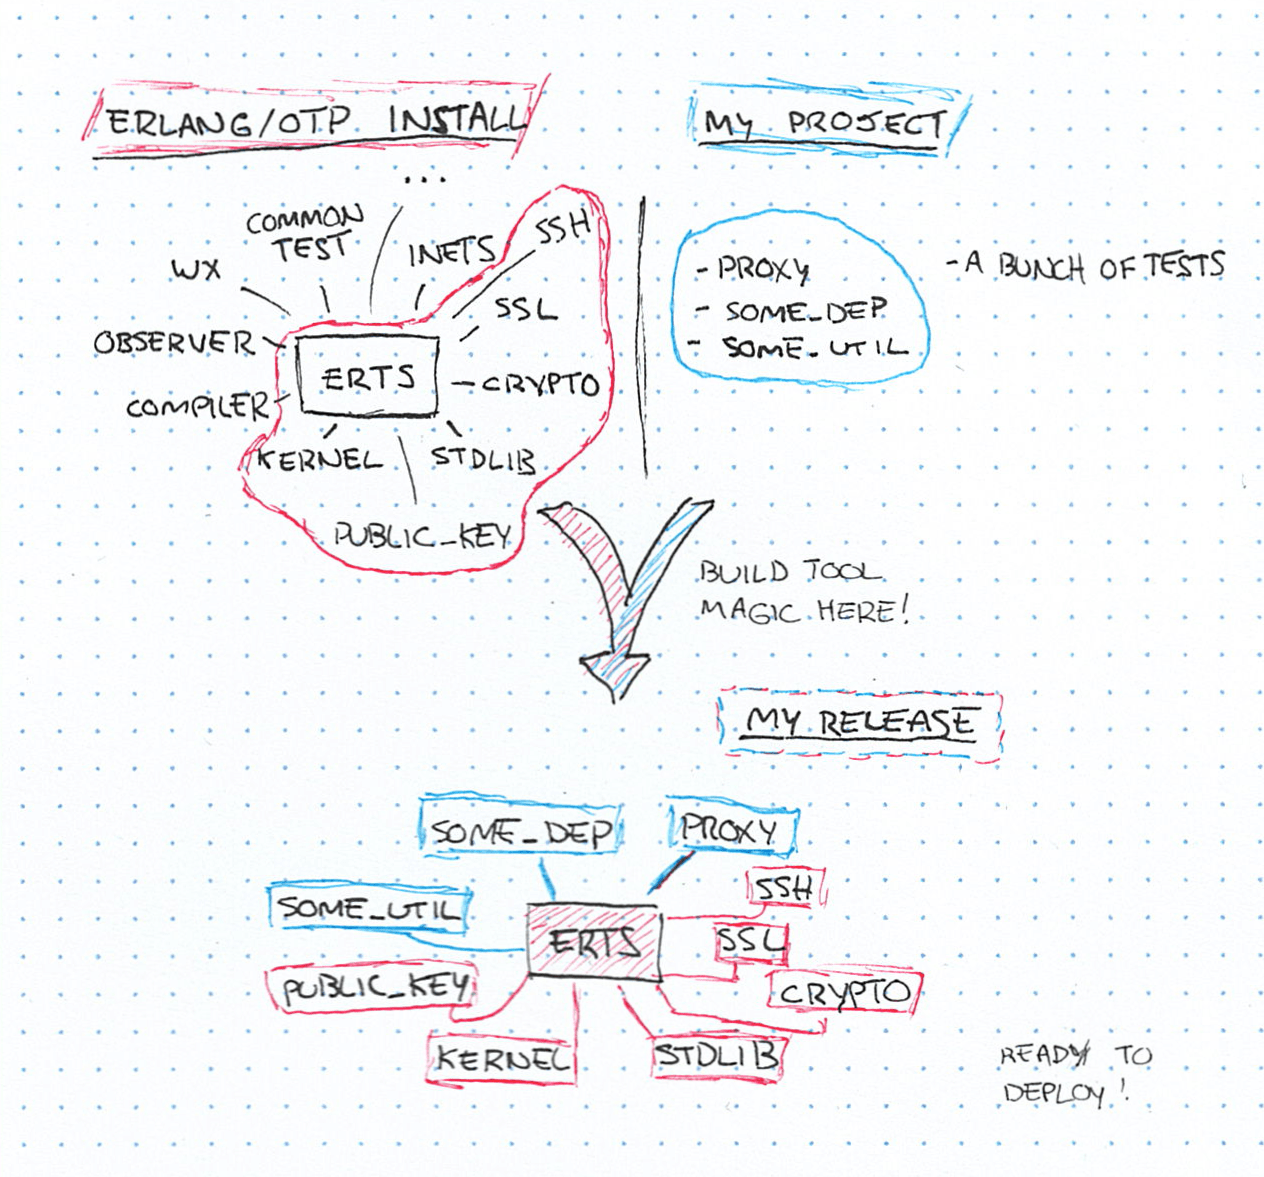 ERLANG/OTP INSTALL
MY PROJECT
...
COMMON
TEST
WX
INETS
SSH
SSL
OBSERVER
ERTS
CRYPTO
COMPILER
KERNEL
STDLIB
PUBLIC_KEY
- PROXY
- SOME_DEP
- SOME_UTIL
- A BUNCH OF TESTS
BUILD TOOL
MAGIC HERE!
MY RELEASE
SOME_DEP
PROXY
SSH
SOME_UTIL
ERTS
SSL
PUBLIC_KEY
CRYPTO
KERNEL
STDLIB
READY TO
DEPLOY!